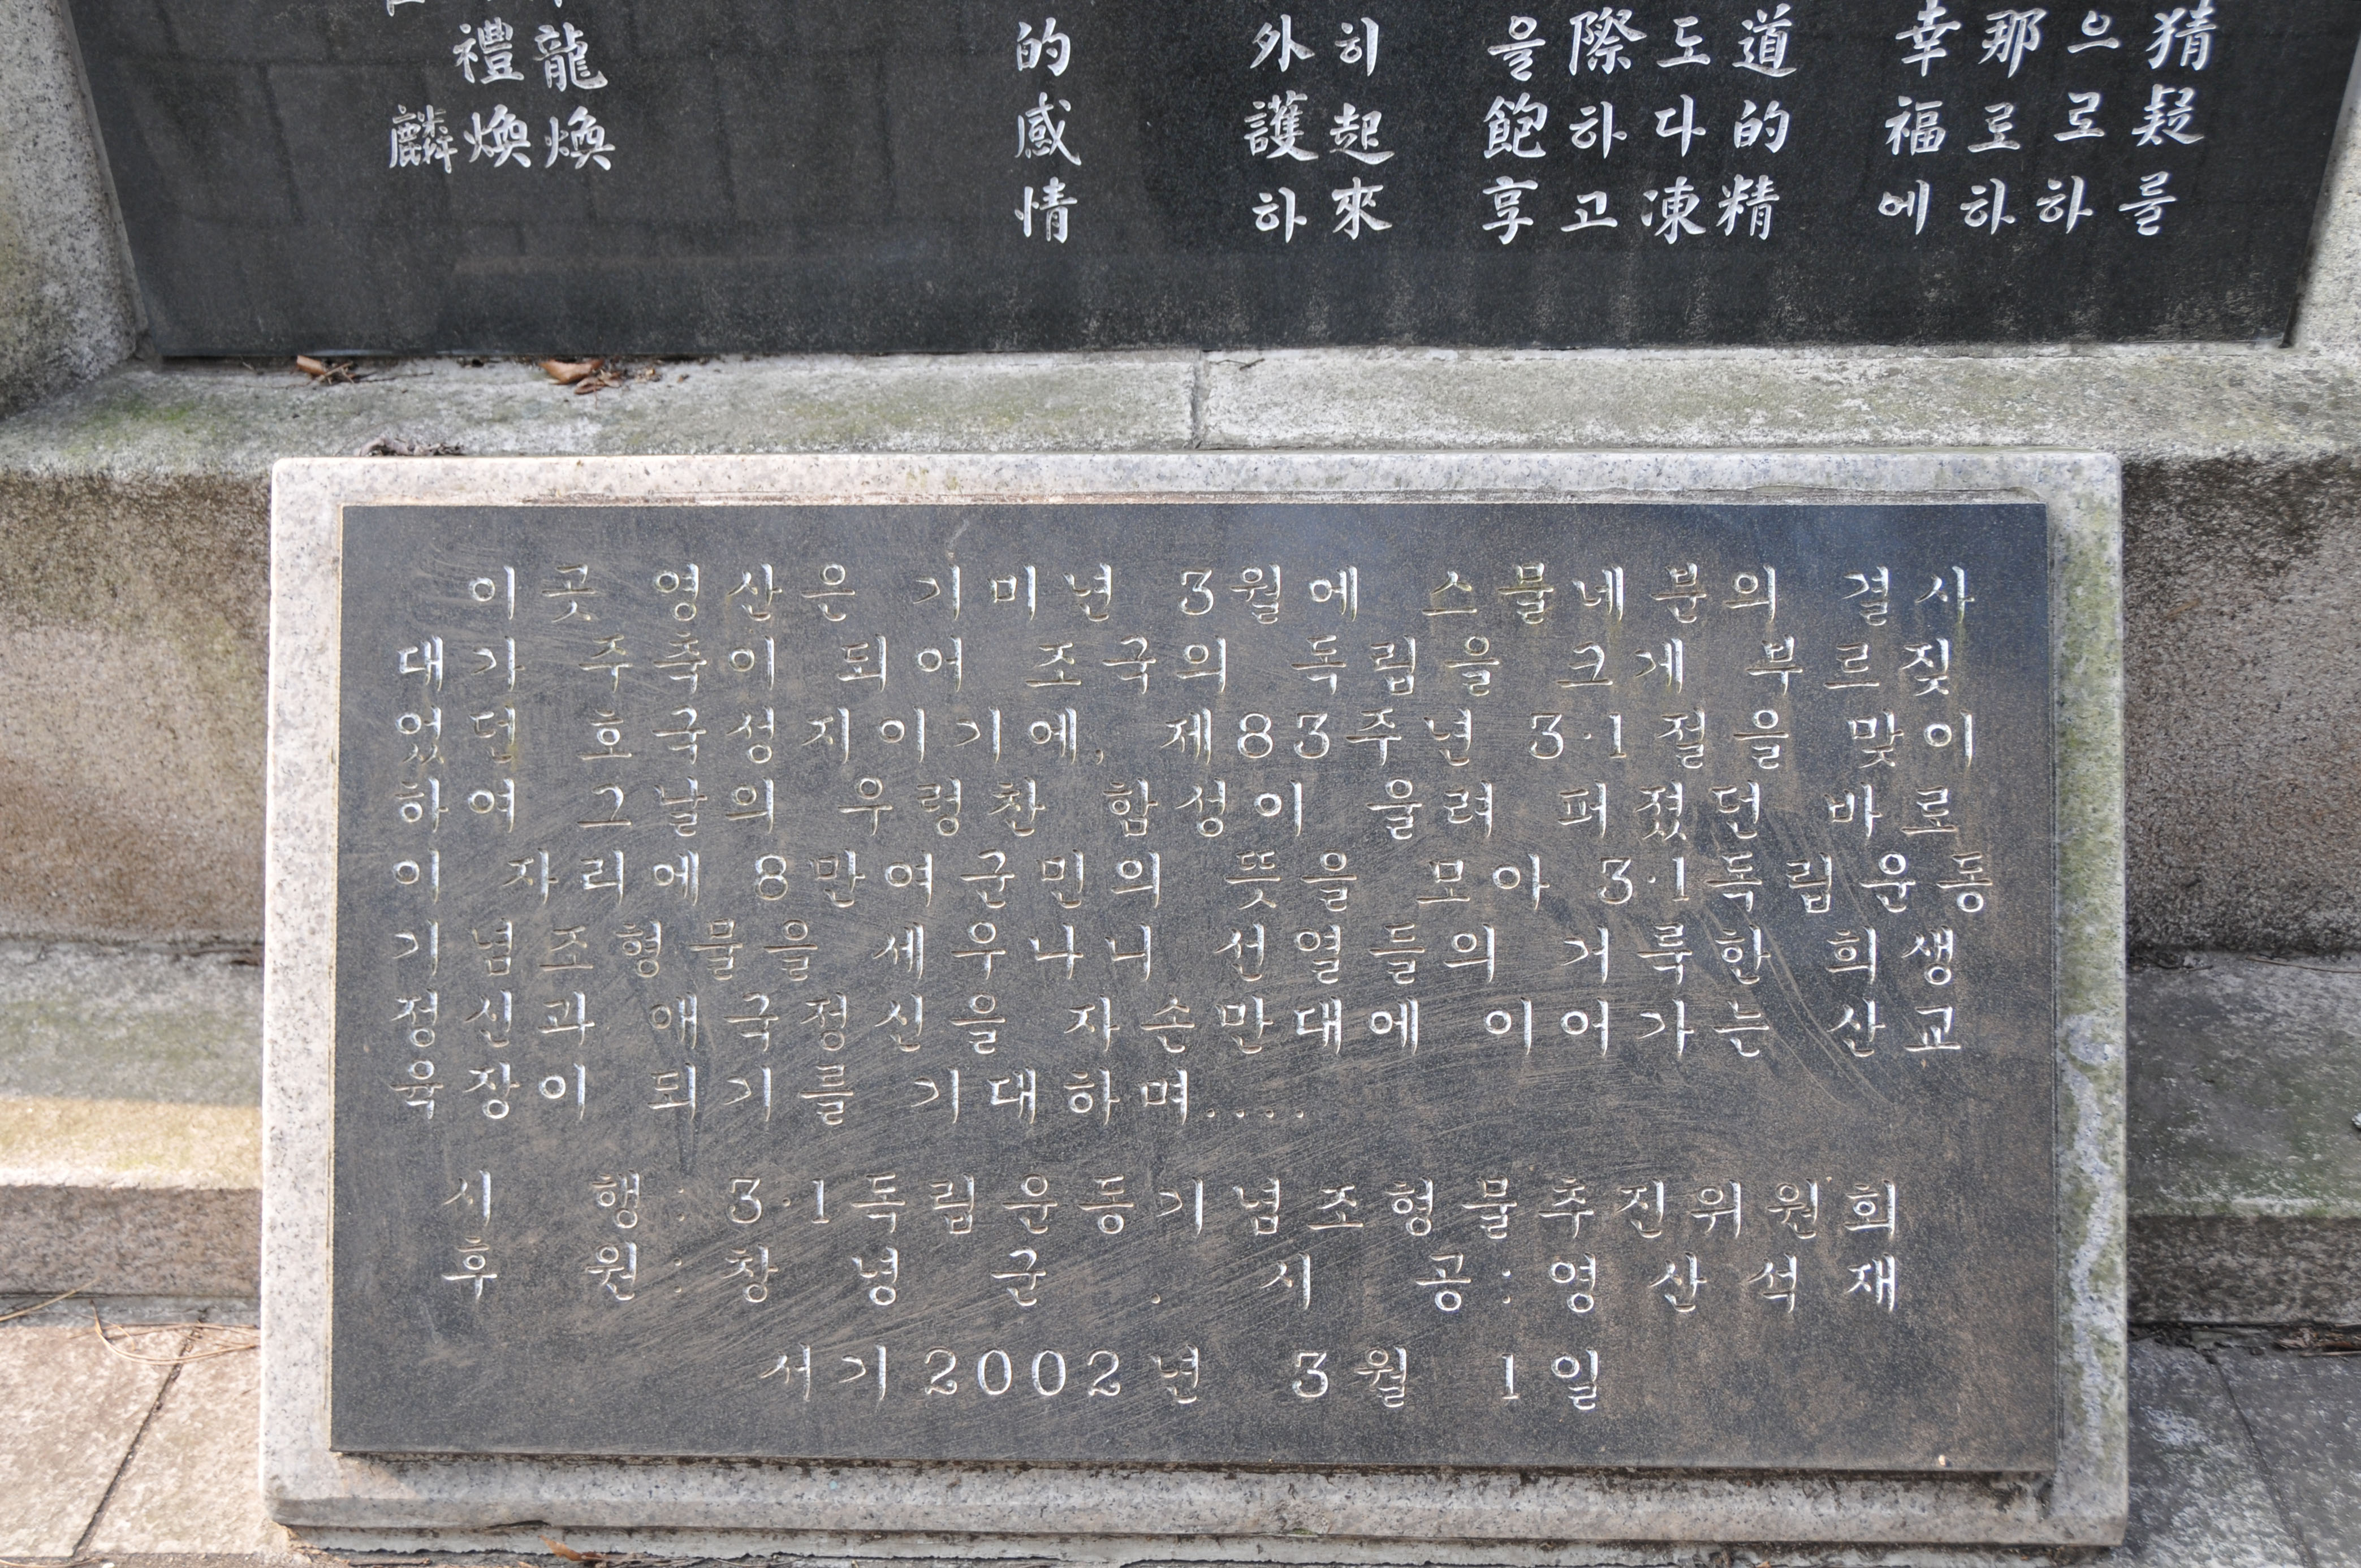 猜疑를
으로하
那로하
幸福에
道的精
도다凍
際하고
을飽享
히起來
外護하
的感情
龍煥
禮煥
麟
이곳 영산은 기미년 3월에 스물네분의 결사
대가 주축이 되어 조국의 독립을 크게 부르짖
었던 호국성지이기에, 제83주년 3·1절을 맞이
하여 그날의 우렁찬 함성이 울려 퍼졌던 바로
이 자리에 8만여군민의 뜻을 모아 3·1독립운동
기념조형물을 세우나니 선열들의 거룩한 희생
정신과 애국정신을 자손만대에 이어가는 산교
육장이 되기를 기대하며....
시 행 : 3·1독립운동기념조형물추진위원회
후 원 : 창녕군 . 시 공 : 영산석재
서기2002년 3월 1일